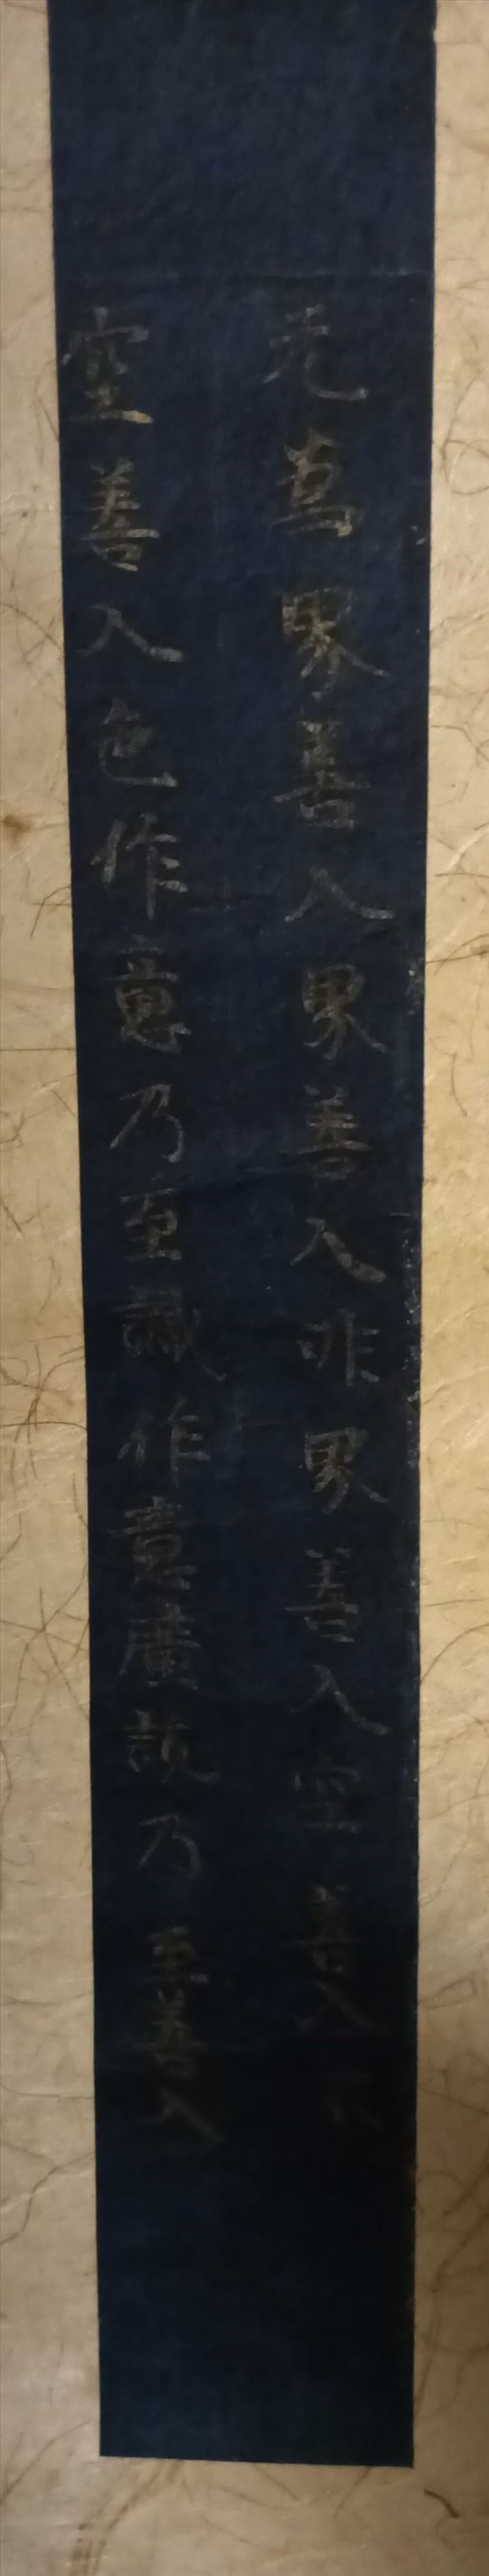 无為界善入界善入非界善入空善入不
空善入色作意乃至識作意廣說乃至善入